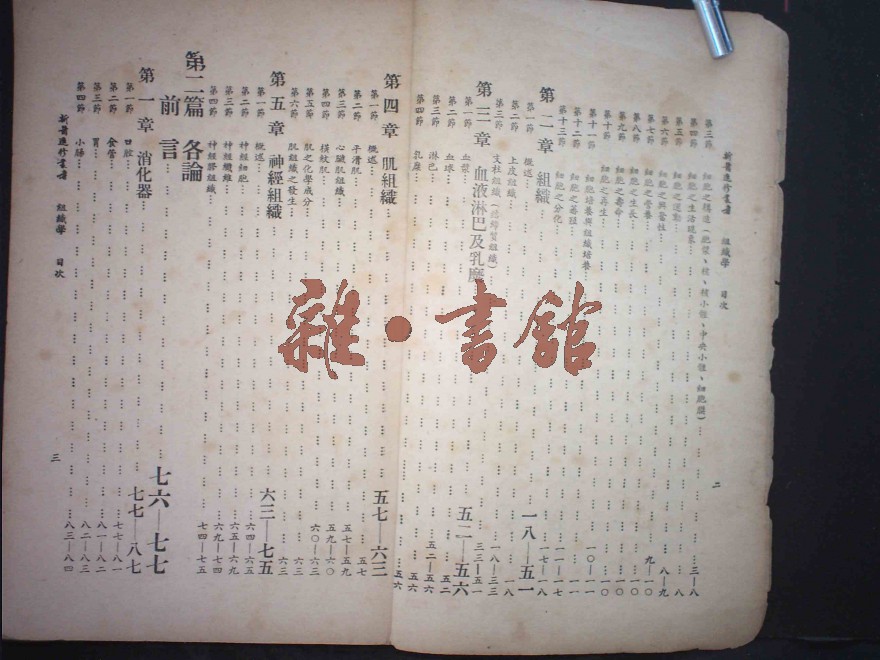 新醫進修叢書 組織學 目次 二
第三節 細胞之構造(胞漿、核、核小體、中央小體、細胞膜) 三—八
第四節 細胞之生活現象 八
第五節 細胞之運動 八
第六節 細胞之興奮性 八—九
第七節 細胞之營養 九—一〇
第八節 細胞之生長 一〇
第九節 細胞之壽命 一〇
第十節 細胞之再生 一〇
第十一節 細胞培養與組織培養 一〇—一一
第十二節 細胞之 一一
第十三節 細胞之分化 一一—一七
第二章 組織 一八—五一
第一節 概述 一七—一八
第二節 上皮組織 一八
第三節 支柱組織(結締質組織) 一八—三三
第三章 血液淋巴及乳糜 五二—五六
第一節 血漿 三三—五一
第二節 血球 五二
第三節 淋巴 五二—五六
第四節 乳糜 五六
第四章 肌組織 五七—六三
第一節 概述 五七
第二節 平滑肌 五七—五九
第三節 心臟肌組織 五九—六〇
第四節 橫紋肌 六〇—六三
第五節 肌之化學成分 六三
第六節 肌組織之發生 六三
第五章 神經組織 六三—七五
第一節 概述 六四
第二節 神經細胞 六五—六九
第三節 神經纖維 六九—七四
第四節 神經膠組織 七四—七五
第二篇 各論
前言 七六—七七
第一章 消化器 七七—八七
第一節 口腔 七七—八一
第二節 食管 八一—八二
第三節 胃 八二—八三
第四節 小腸 八三—八四
新醫進修叢書 組織學 目次 三
雜·書館